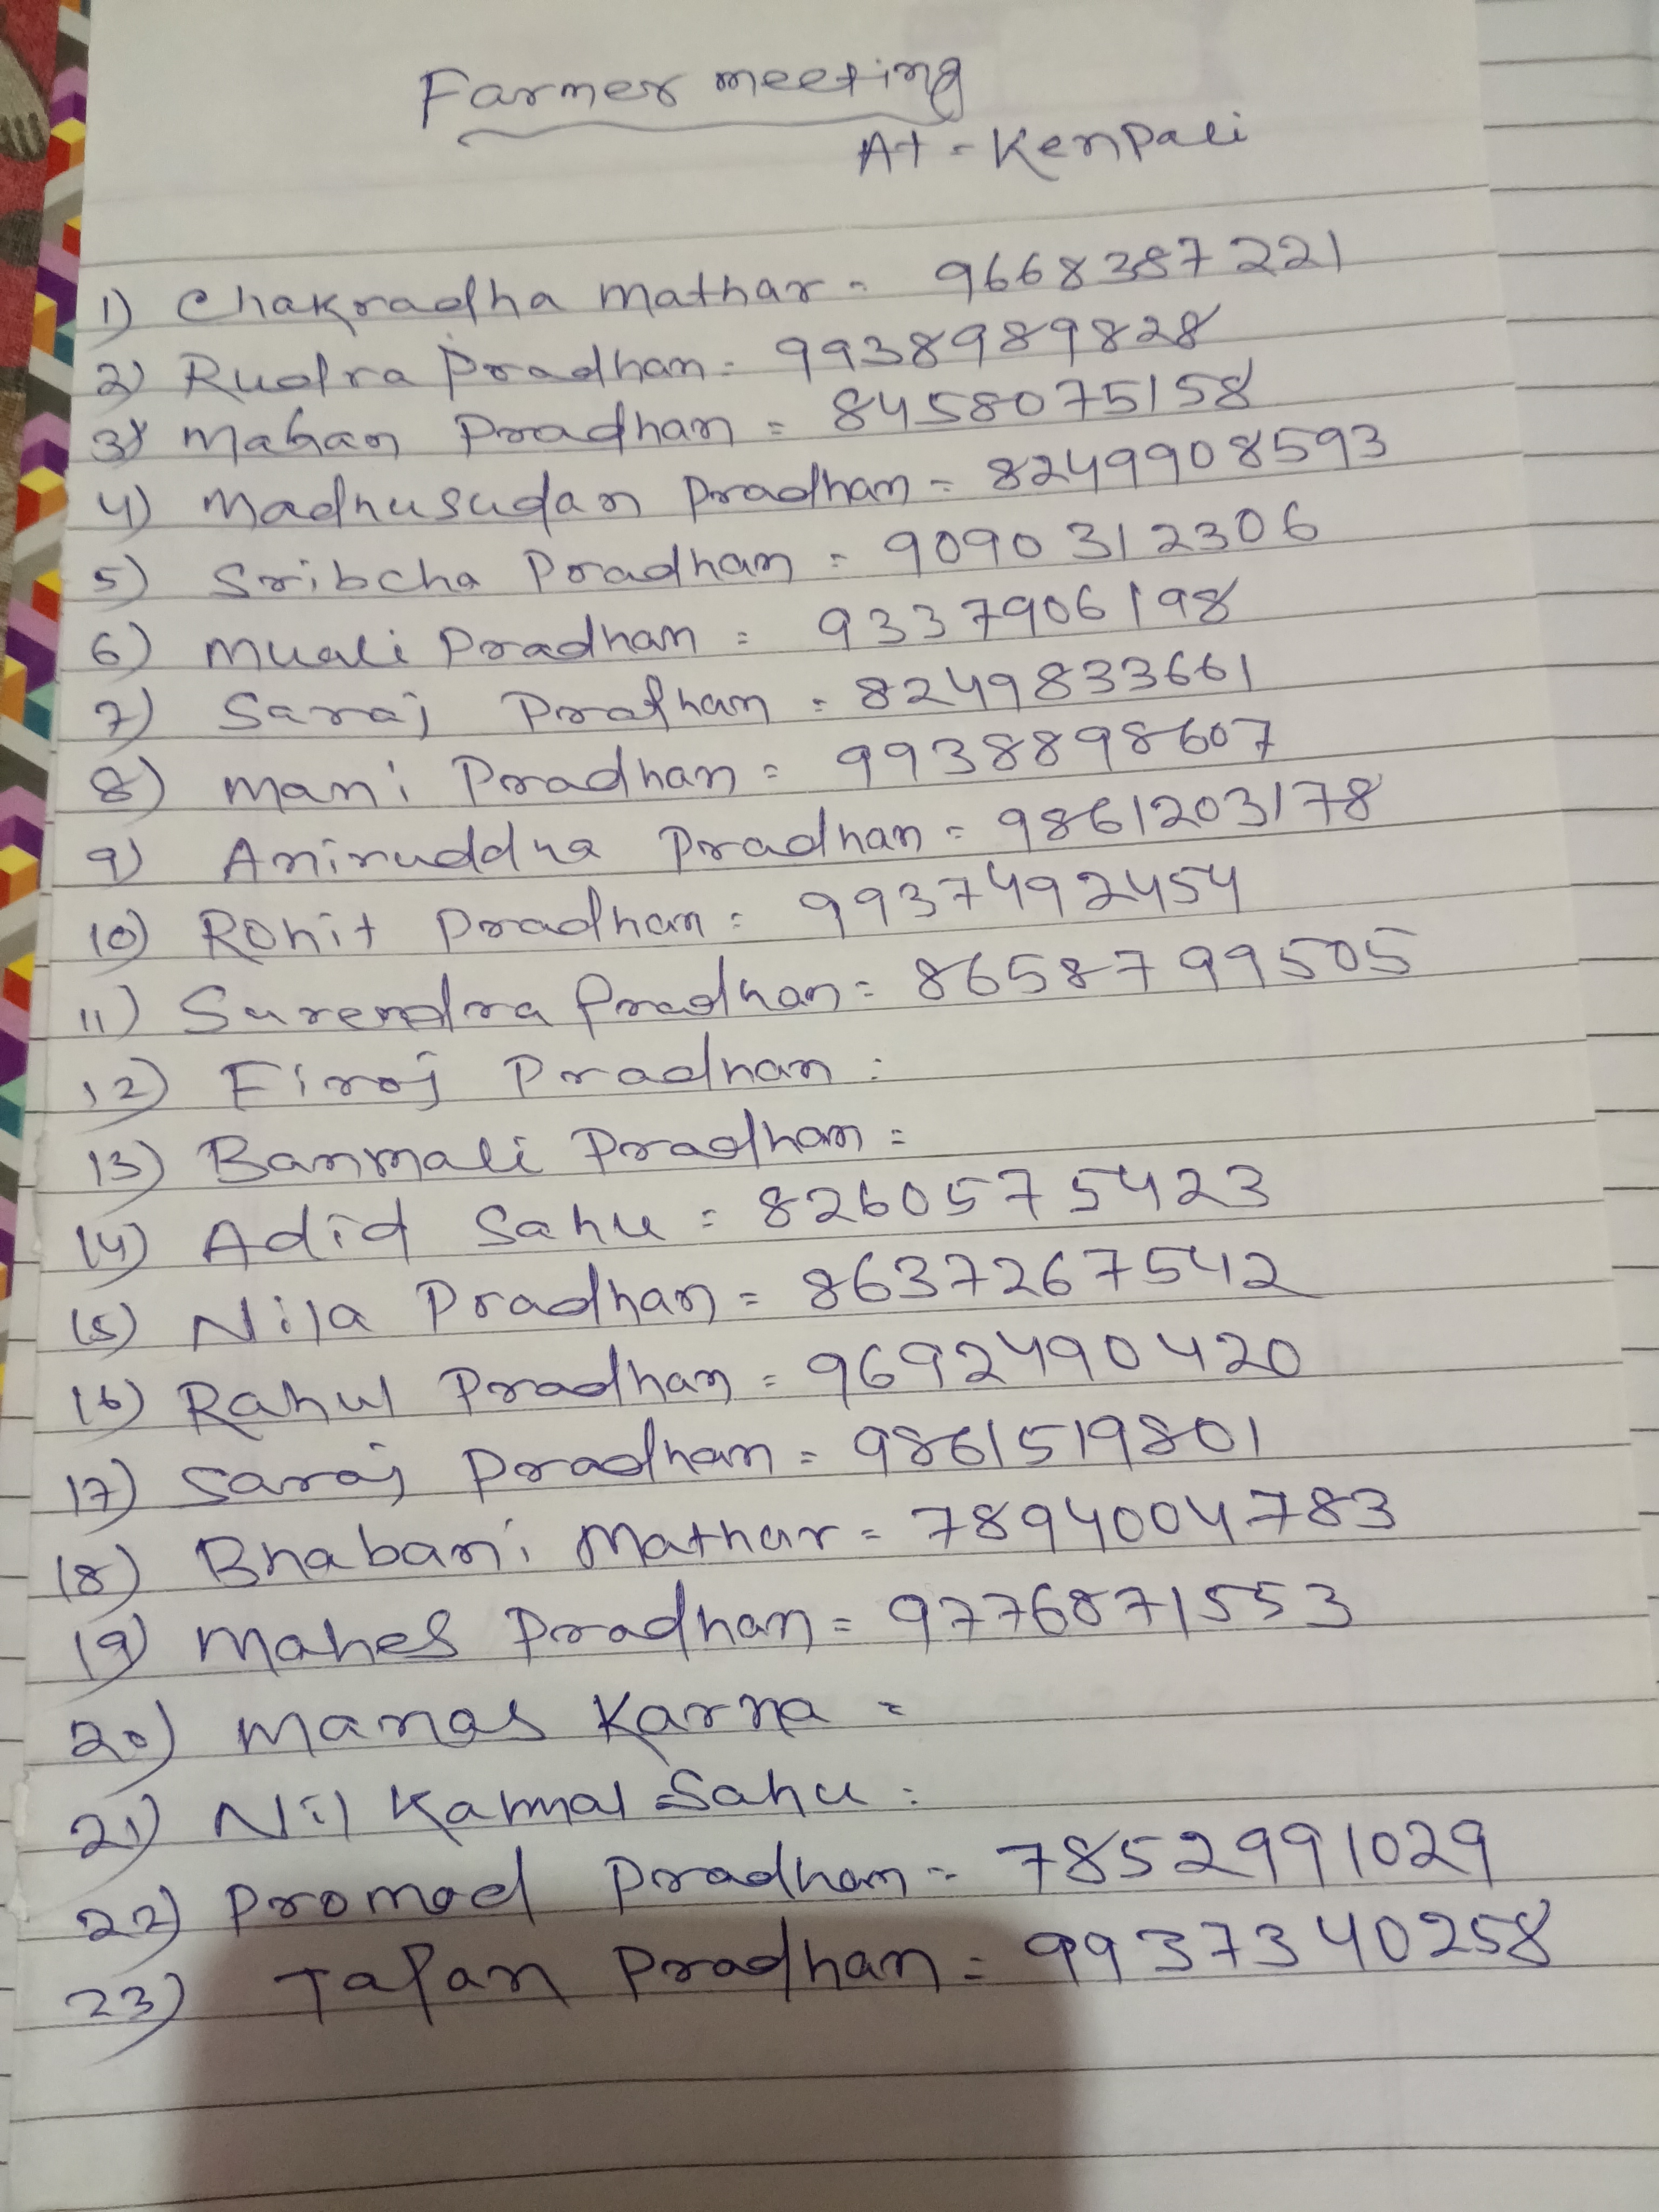 Farmer meeting
At - Kenpali
1) Chakradha Mathar = 9668387221
2) Rudra Pradhan = 9938989828
3) Mahan Pradhan = 8458075158
4) Madhusudan Pradhan = 8249908593
5) Sribcha Pradhan = 9090312306
6) Muali Pradhan = 9337906198
7) Saraj Pradhan = 8249833661
8) Mani Pradhan = 9938898607
9) Aniruddha Pradhan = 9861203178
10) Rohit Pradhan = 9937492454
11) Surendra Pradhan = 8658799505
12) Firoj Pradhan :
13) Banmali Pradhan =
14) Adid Sahu = 8260575423
15) Nila Pradhan = 8637267542
16) Rahul Pradhan = 9692490420
17) Saraj Pradhan = 9861519801
18) Bhabani Mathar = 7894004783
19) Mahes Pradhan = 9776871553
20) Manas Karna =
21) Nil Kamal Sahu :
22) Promod Pradhan = 7852991029
23) Tafan Pradhan = 9937340258